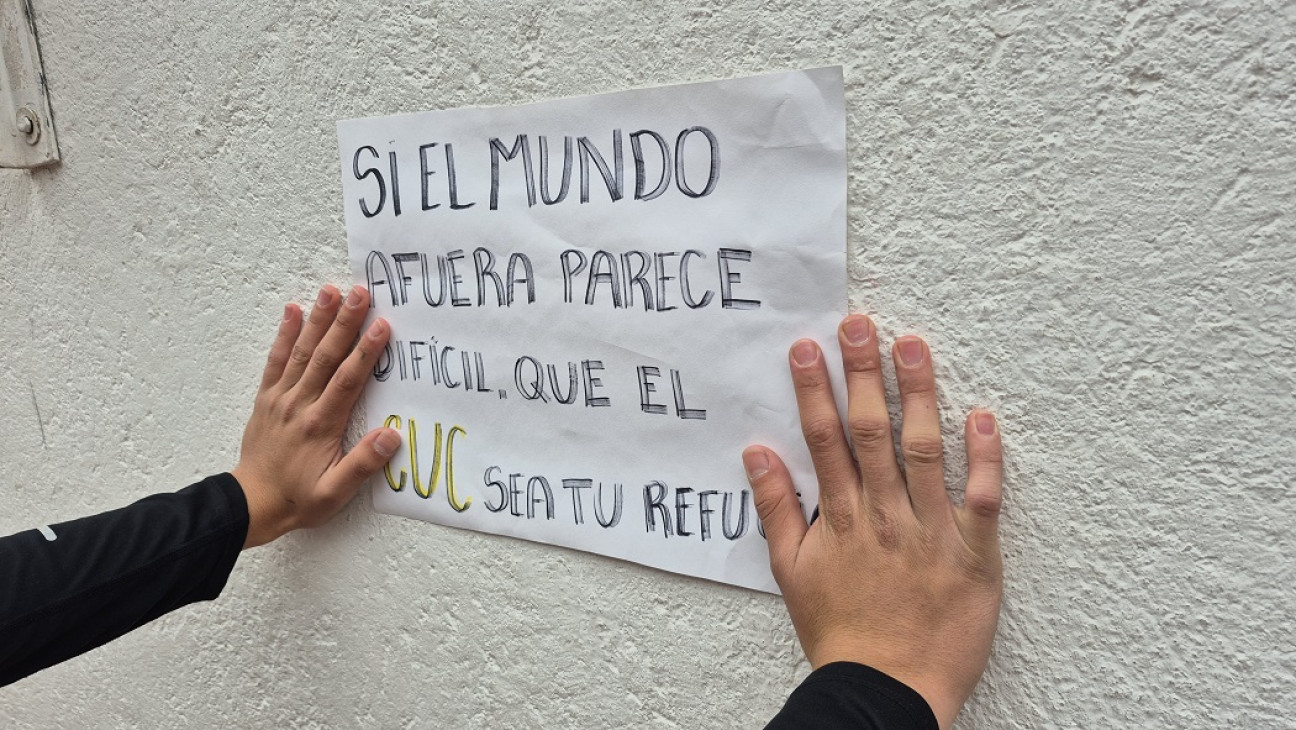 SI EL MUNDO
AFUERA PARECE
DIFÍCIL.. QUE EL
CUC SEA TU